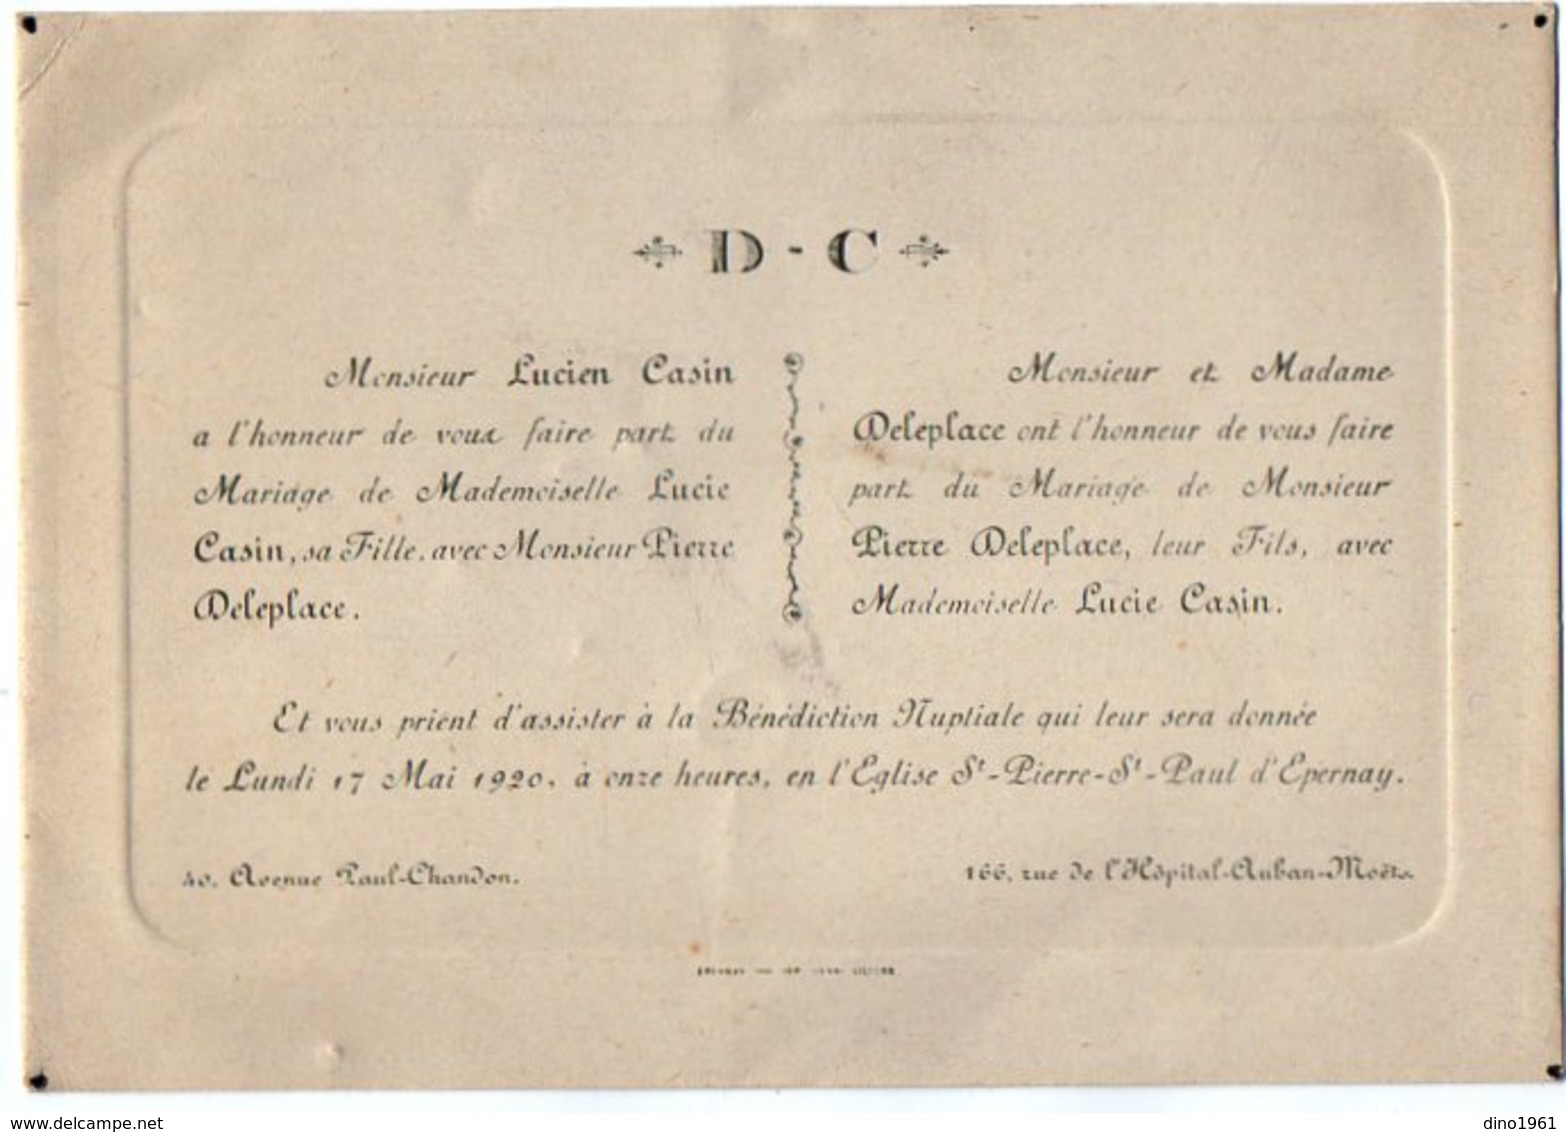 D - C
Monsieur Lucien Casin
a l'honneur de vous faire part du
Mariage de Mademoiselle Lucie
Casin, sa Fille, avec Monsieur Pierre
Deleplace.
Monsieur et Madame
Deleplace ont l'honneur de vous faire
part du Mariage de Monsieur
Pierre Deleplace, leur Fils, avec
Mademoiselle Lucie Casin.
Et vous prient d'assister à la Bénédiction Nuptiale qui leur sera donnée
le Lundi 17 Mai 1920, à onze heures, en l'Eglise St-Pierre-St-Paul d'Epernay.
40, Avenue Paul-Chandon.
166, rue de l'Hôpital-Auban-Moëts
www.delcampe.net
dino1961